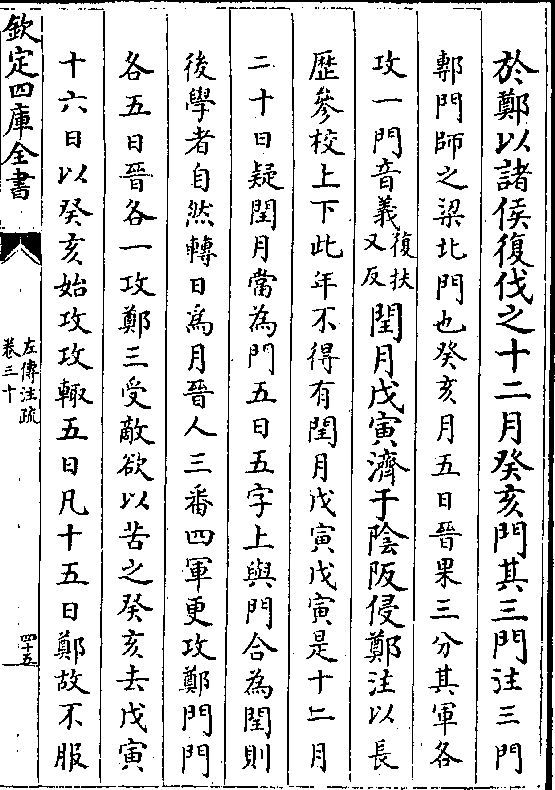 於鄭以諸侯復伐之十二月癸亥門其三門注三門
鄟門師之梁北門也癸亥月五日晉果三分其軍各
攻一門音義復扶又反閏月戊寅濟于陰阪侵鄭注以長
歷參校上下此年不得有閏月戊寅戊寅是十二月
二十日疑閏月當為門五日五字上與門合為閏則
後學者自然轉日為月晉人三番四軍更攻鄭門門
各五日晉各一攻鄭三受敵欲以苦之癸亥去戊寅
十六日以癸亥始攻攻輙五日凡十五日鄭故不服
欽定四庫全書
左傳注疏
卷三十
四十五